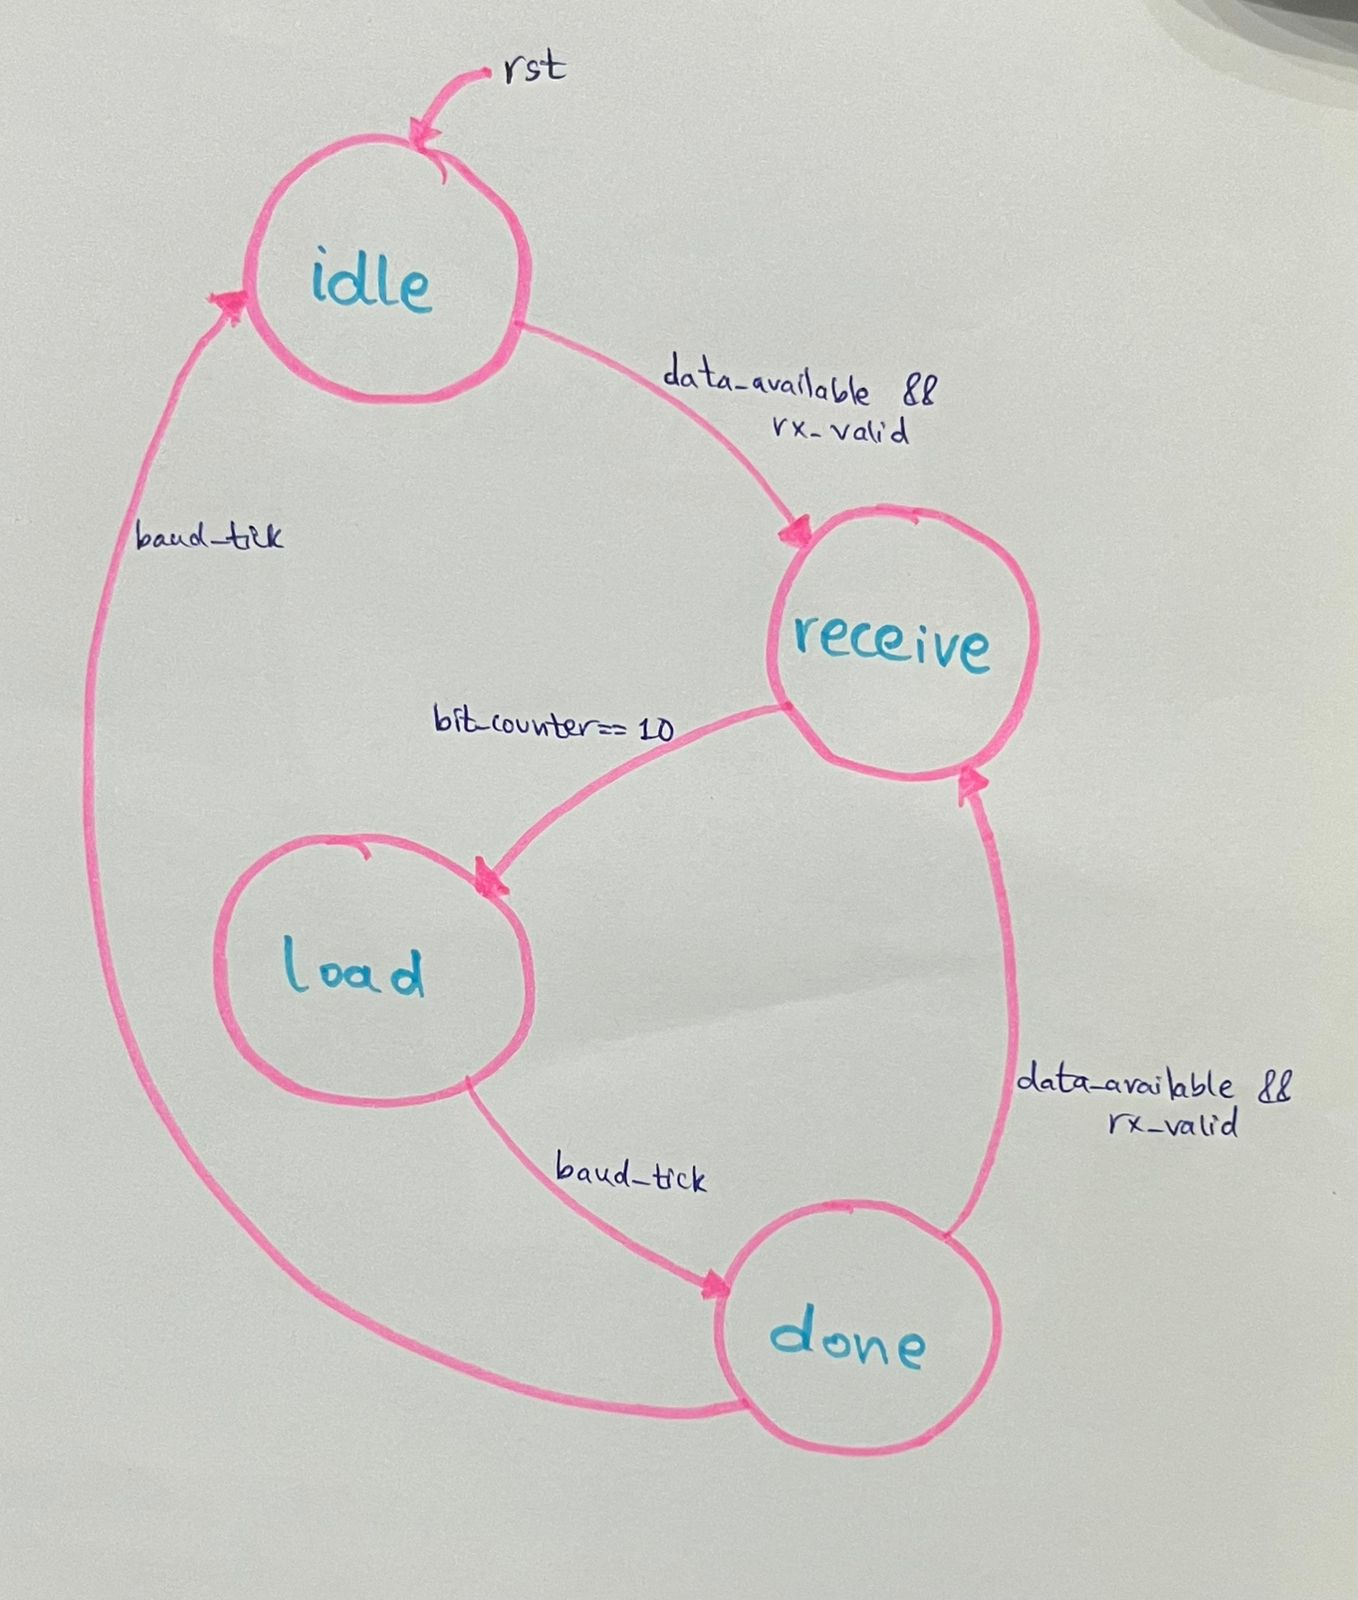 rst
idle
data_available &&
rx_valid
baud_tick
receive
bit_counter== 10
load
data_available &&
rx_valid
baud_tick
done